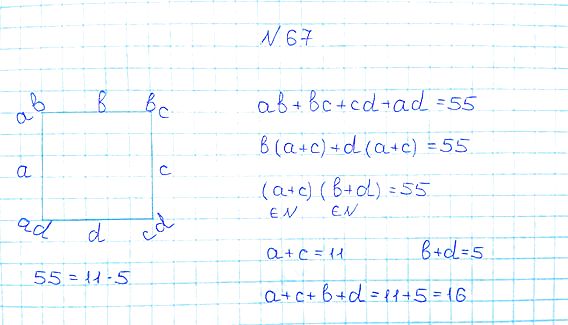 N 67
aв в вc
a c
ad d cd
55 = 11 · 5
aв + вc + cd + ad = 55
в(a+c) + d(a+c) = 55
(a+c)(в+d) = 55
∈N ∈N
a+c = 11 в+d = 5
a+c+в+d = 11+5 = 16